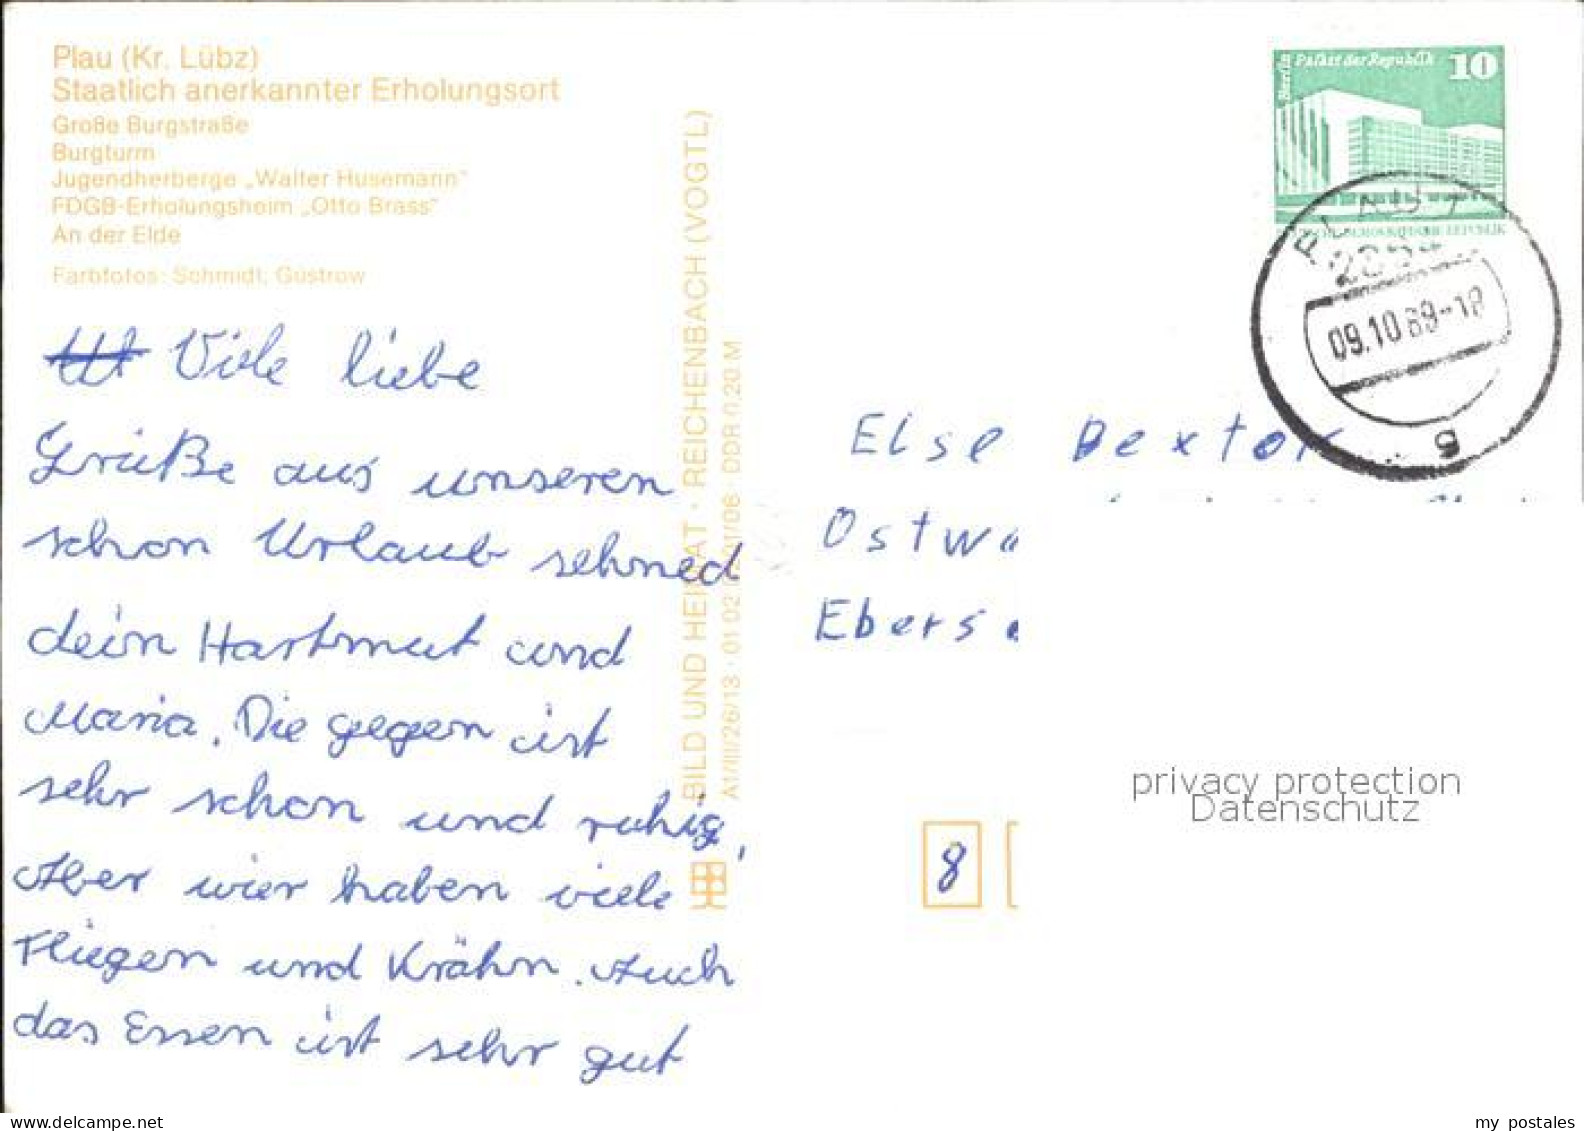 Plau (Kr. Lübz)
Staatlich anerkannter Erholungsort
Große Burgstraße
Burgturm
Jugendherberge „Walter Husemann"
FDGB-Erholungsheim „Otto Brass"
An der Elde
Farbfotos: Schmidt, Güstrow
Viele liebe
Grüße aus unseren
schon Urlaub sehned
dein Hartmut und
Maria. Die gegen ist
sehr schon und ruhig,
Aber wier haben viele
Fliegen und Krähn. Auch
das Essen ist sehr gut
BILD UND HEIMAT · REICHENBACH (VOGTL)
A1/III/26/13 · 01 02 01/06 · DDR 0,20 M
Berlin Palast der Republik 10
PLAU
09.10.89-18
Else Dextor
Ostwa
Ebers
8
privacy protection
Datenschutz
www.delcampe.net
my postales